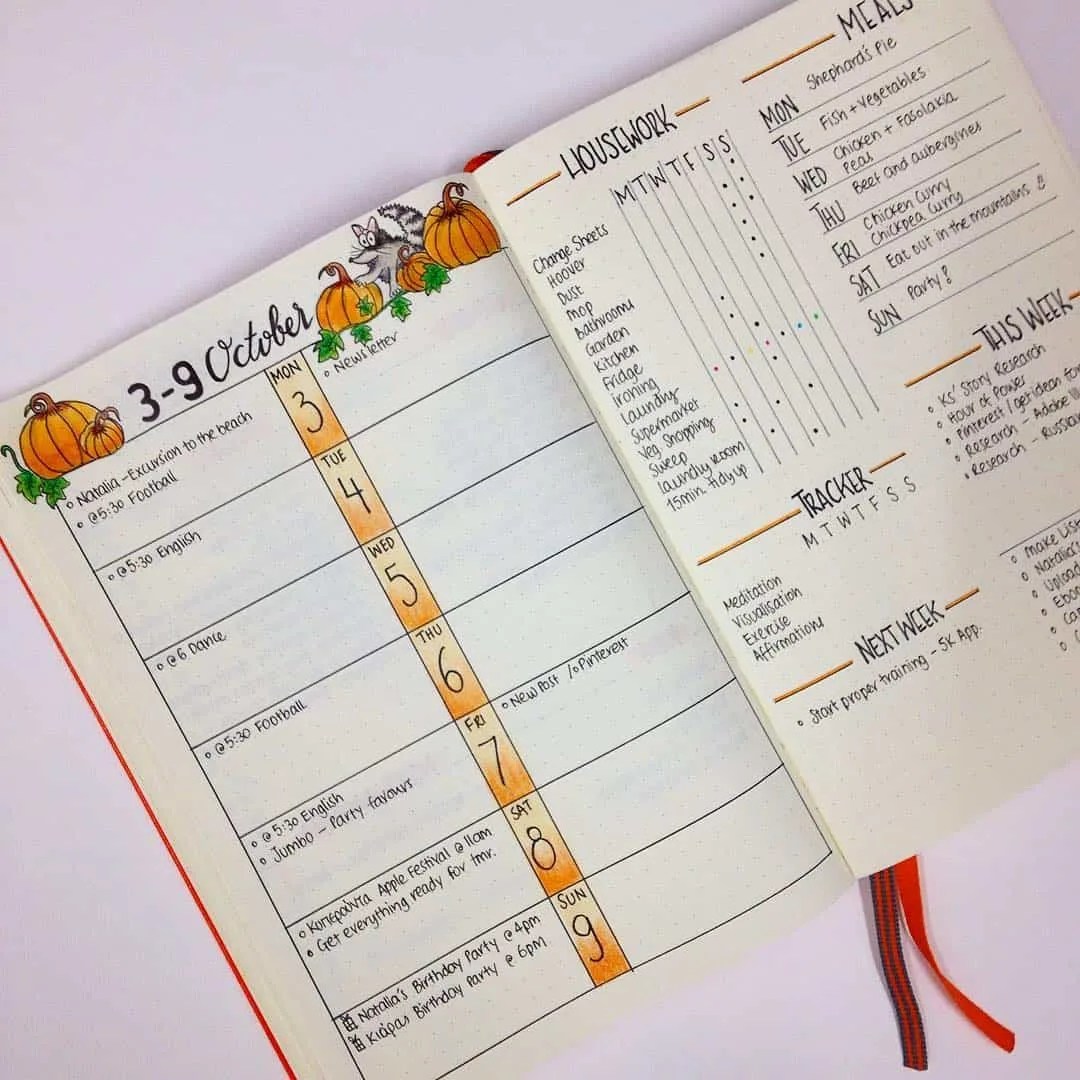 3-9 October
Natalia - Excursion to the beach
@5:30 Football
MON
3
Newsletter
@5:30 English
TUE
4
@6 Dance
WED
5
@5:30 Football
THU
6
New Post / Pinterest
@5:30 English
Jumbo - Party favours
FRI
7
Κυπερούντα Apple Festival @ 11am
Get everything ready for tmr.
SAT
8
Natalia's Birthday Party @ 4pm
Κιάρας Birthday Party @ 6pm
SUN
9
HOUSEWORK
M T W T F S S
Change Sheets
Hoover
Dust
Mop
Bathrooms
Garden
Kitchen
Fridge
Ironing
Laundry
Supermarket
Veg Shopping
Sweep
Laundry Room
15min. tidy up
TRACKER
M T W T F S S
Meditation
Visualisation
Exercise
Affirmations
NEXT WEEK
Start proper training - 5K App.
MEALS
MON Shephard's Pie
TUE Fish + Vegetables
WED Chicken + Fasolakia
Peas
THU Beef and aubergines
FRI Chicken Curry
Chickpea Curry
SAT Eat out in the mountains
SUN Party?
THIS WEEK
KS' Story Research
Hour of Power
Pinterest / get ideas for
Research - Adobe Ill
Research - Russia
Make List
Natalia's
Upload
Ebo
Ca